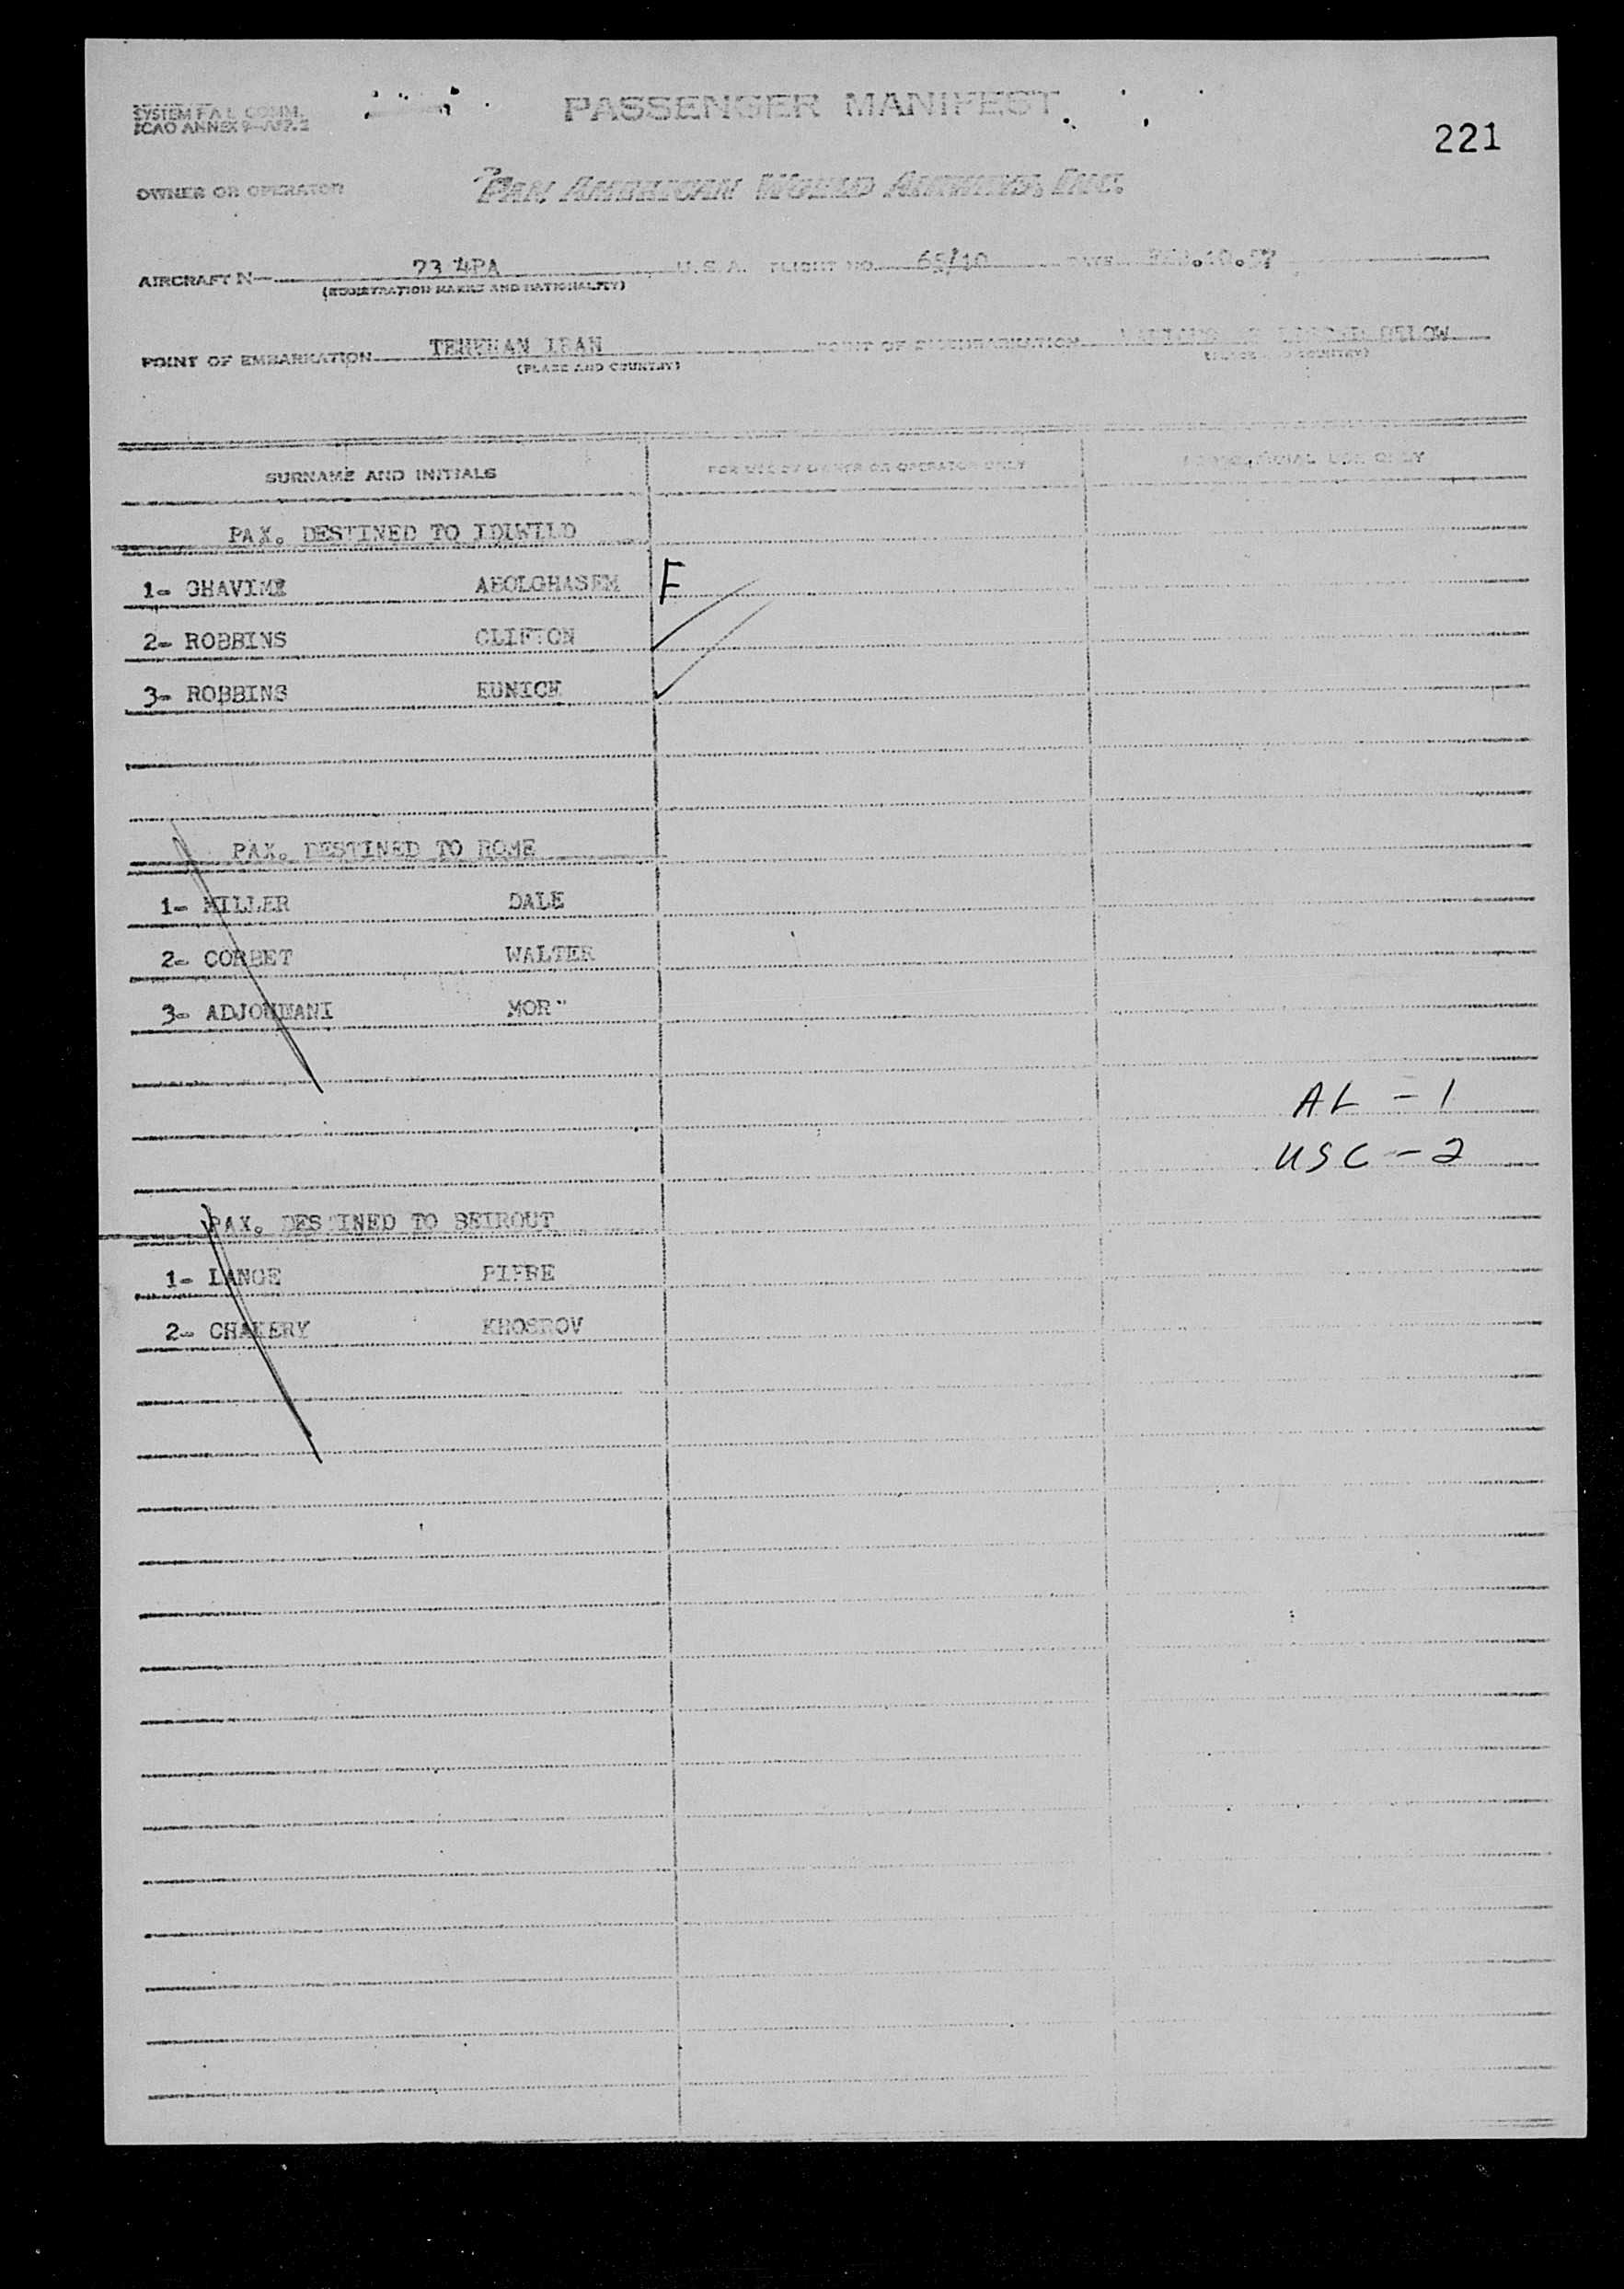 SYSTEM F A L COMM.
ICAO ANNEX 9-APP. 2
PASSENGER MANIFEST
221
OWNER OR OPERATOR
PAN AMERICAN WORLD AIRWAYS, INC.
AIRCRAFT N- 734PA U.S.A. FLIGHT NO. 65/10 DATE FEB.10.57
(REGISTRATION MARKS AND NATIONALITY)
POINT OF EMBARKATION TEHERAN IRAN POINT OF DISEMBARKATION BELOW
(PLACE AND COUNTRY) (PLACE AND COUNTRY)
SURNAME AND INITIALS FOR USE BY OWNER OR OPERATOR ONLY FOR OFFICIAL USE ONLY
PAX. DESTINED TO IDLWILD
1- GHAVIMI ABOLGHASEM F
2- ROBBINS CLIFTON
3- ROBBINS EUNICE
PAX. DESTINED TO ROME
1- MILLER DALE
2- CORBET WALTER
3- MOR"
AL - 1
USC - 2
PAX. DESTINED TO BEIROUT
1- LANGE
2- CHAKERY KHOSROV